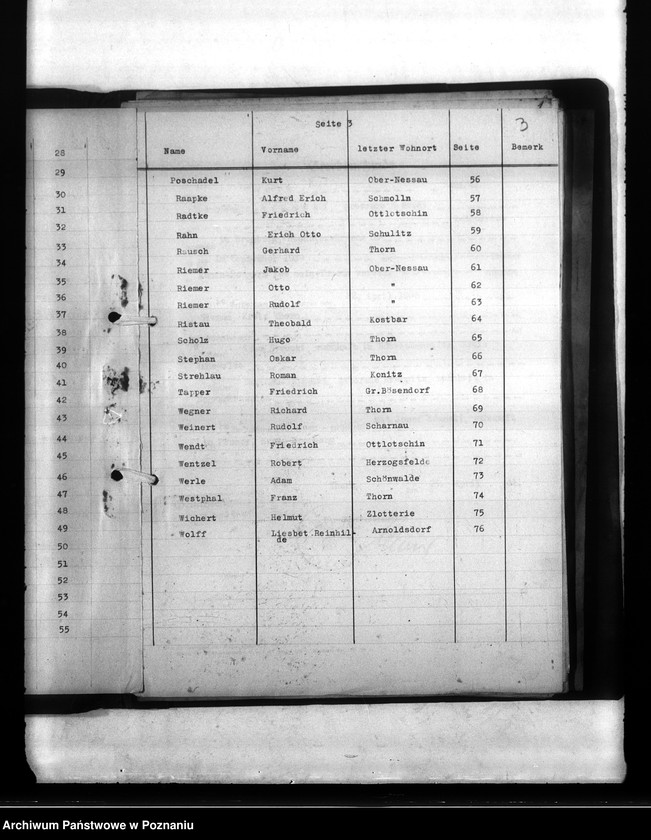 Seite 3
3
Name Vorname letzter Wohnort Seite Bemerk
Poschadel Kurt Ober-Nessau 56
Raapke Alfred Erich Schmolln 57
Radtke Friedrich Ottlotschin 58
Rahn Erich Otto Schulitz 59
Rausch Gerhard Thorn 60
Riemer Jakob Ober-Nessau 61
Riemer Otto " 62
Riemer Rudolf " 63
Ristau Theobald Kostbar 64
Scholz Hugo Thorn 65
Stephan Oskar Thorn 66
Strehlau Roman Konitz 67
Tapper Friedrich Gr.Bösendorf 68
Wegner Richard Thorn 69
Weinert Rudolf Scharnau 70
Wendt Friedrich Ottlotschin 71
Wentzel Robert Herzogsfelde 72
Werle Adam Schönwalde 73
Westphal Franz Thorn 74
Wichert Helmut Zlotterie 75
Wolff Liesbet.Reinhil- Arnoldsdorf 76
de
28
29
30
31
32
33
34
35
36
37
38
39
40
41
42
43
44
45
46
47
48
49
50
51
52
53
54
55
Archiwum Państwowe w Poznaniu